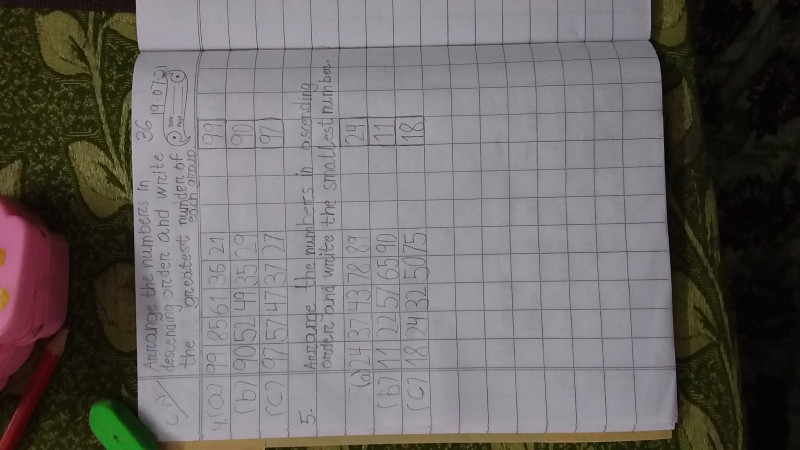 C.W
Arrange the numbers in 36
descending order and write 19.07.21
the greatest number of
each group.
4(a) 99 85 61 36 21 99
(b) 90 52 49 35 29 90
(c) 97 57 47 37 27 97
5. Arrange the numbers in ascending
order and write the smallest number.
(a) 24 37 43 78 89 24
(b) 11 22 57 65 90 11
(c) 18 24 32 50 75 18